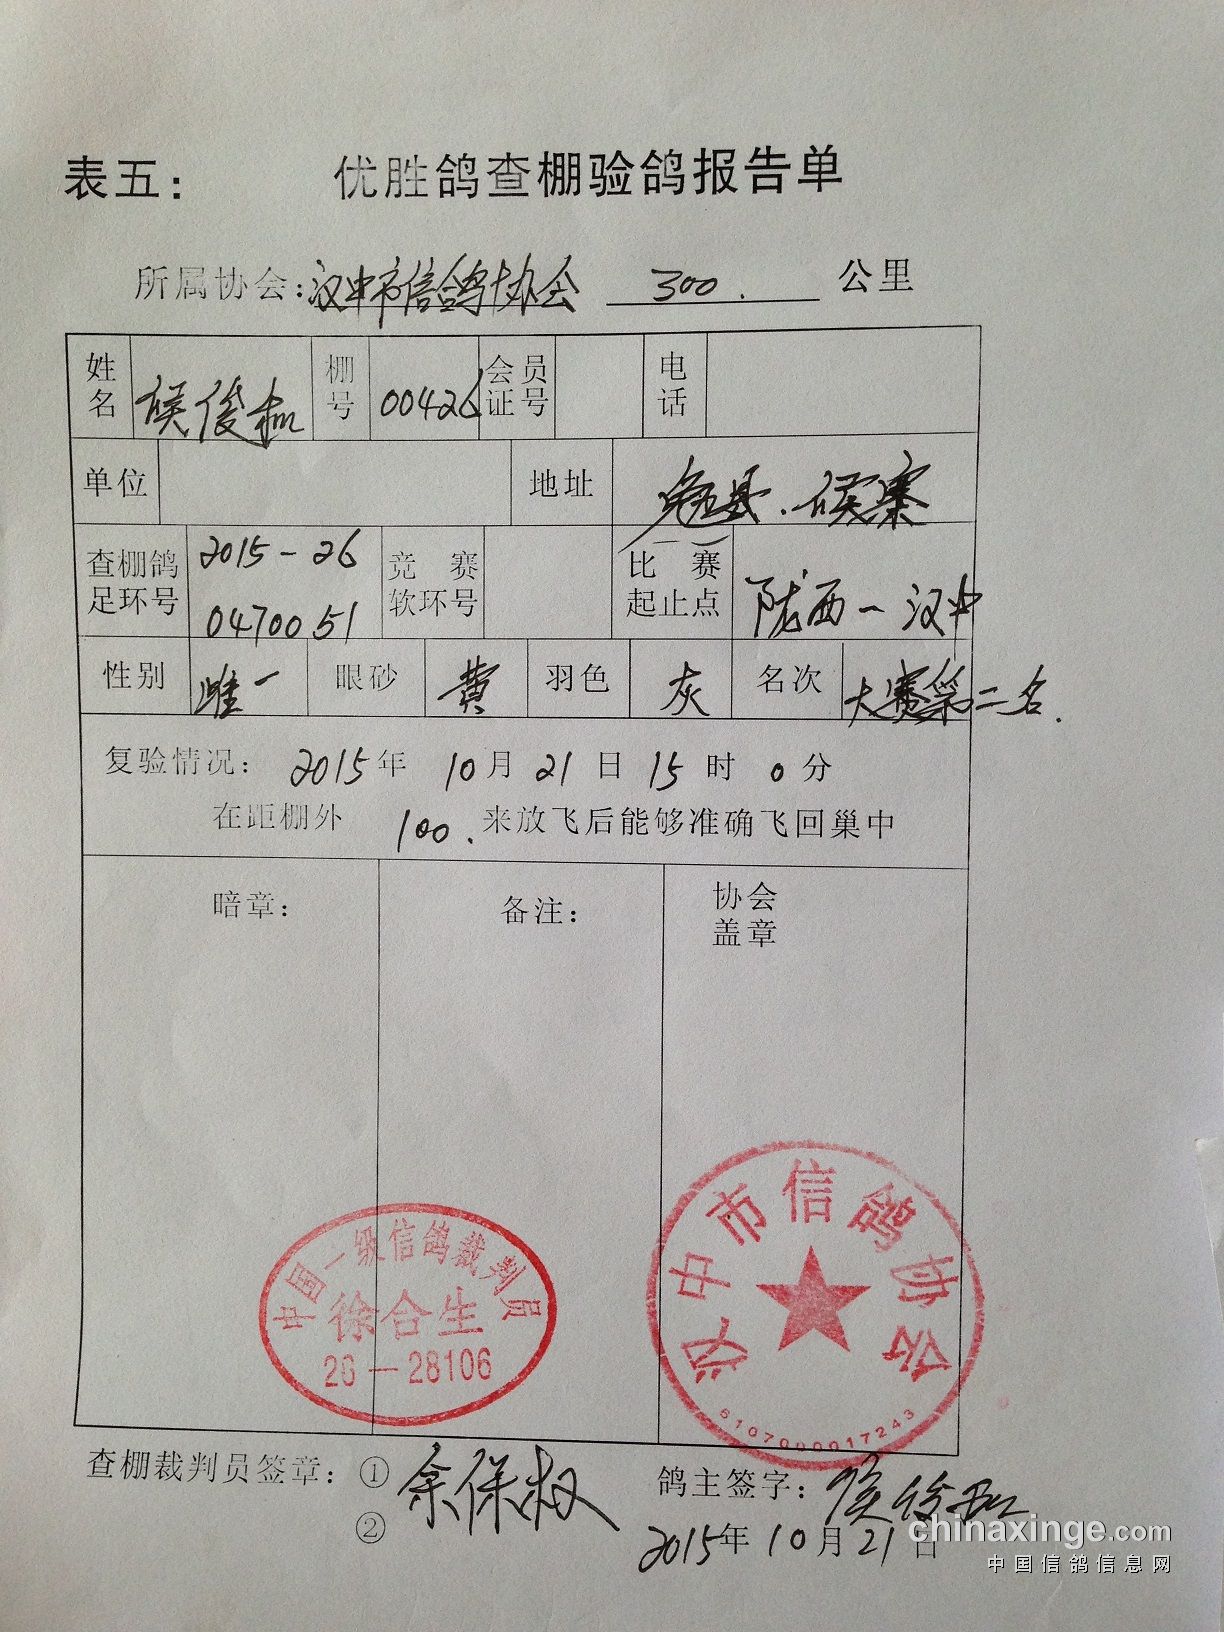 表五： 优胜鸽查棚验鸽报告单
所属协会：汉中市信鸽协会 300. 公里
姓名 侯俊 棚号 00426 会员证号 电话
单位 地址 勉县.侯寨
查棚鸽足环号 2015-26 0470051 竞赛软环号 比赛起止点 陇西-汉中
性别 雌 眼砂 黄 羽色 灰 名次 大赛第二名.
复验情况： 2015年 10月 21日 15时 0分
在距棚外 100. 来放飞后能够准确飞回巢中
暗章： 备注： 协会盖章
中国一级信鸽裁判员
徐合生
26-28106
汉中市信鸽协会
6107000017243
查棚裁判员签章：① 余保权 鸽主签字： 侯俊
② 2015年10月21日
chinaxinge.com
中国信鸽信息网